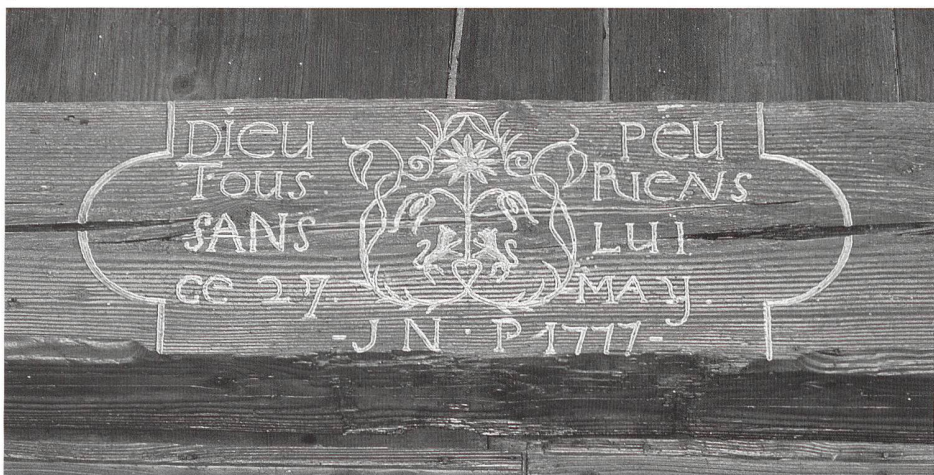 Dieu Peu
Tous Riens
SANS LUI.
ce 27. MAy.
- J N · P 1777 -